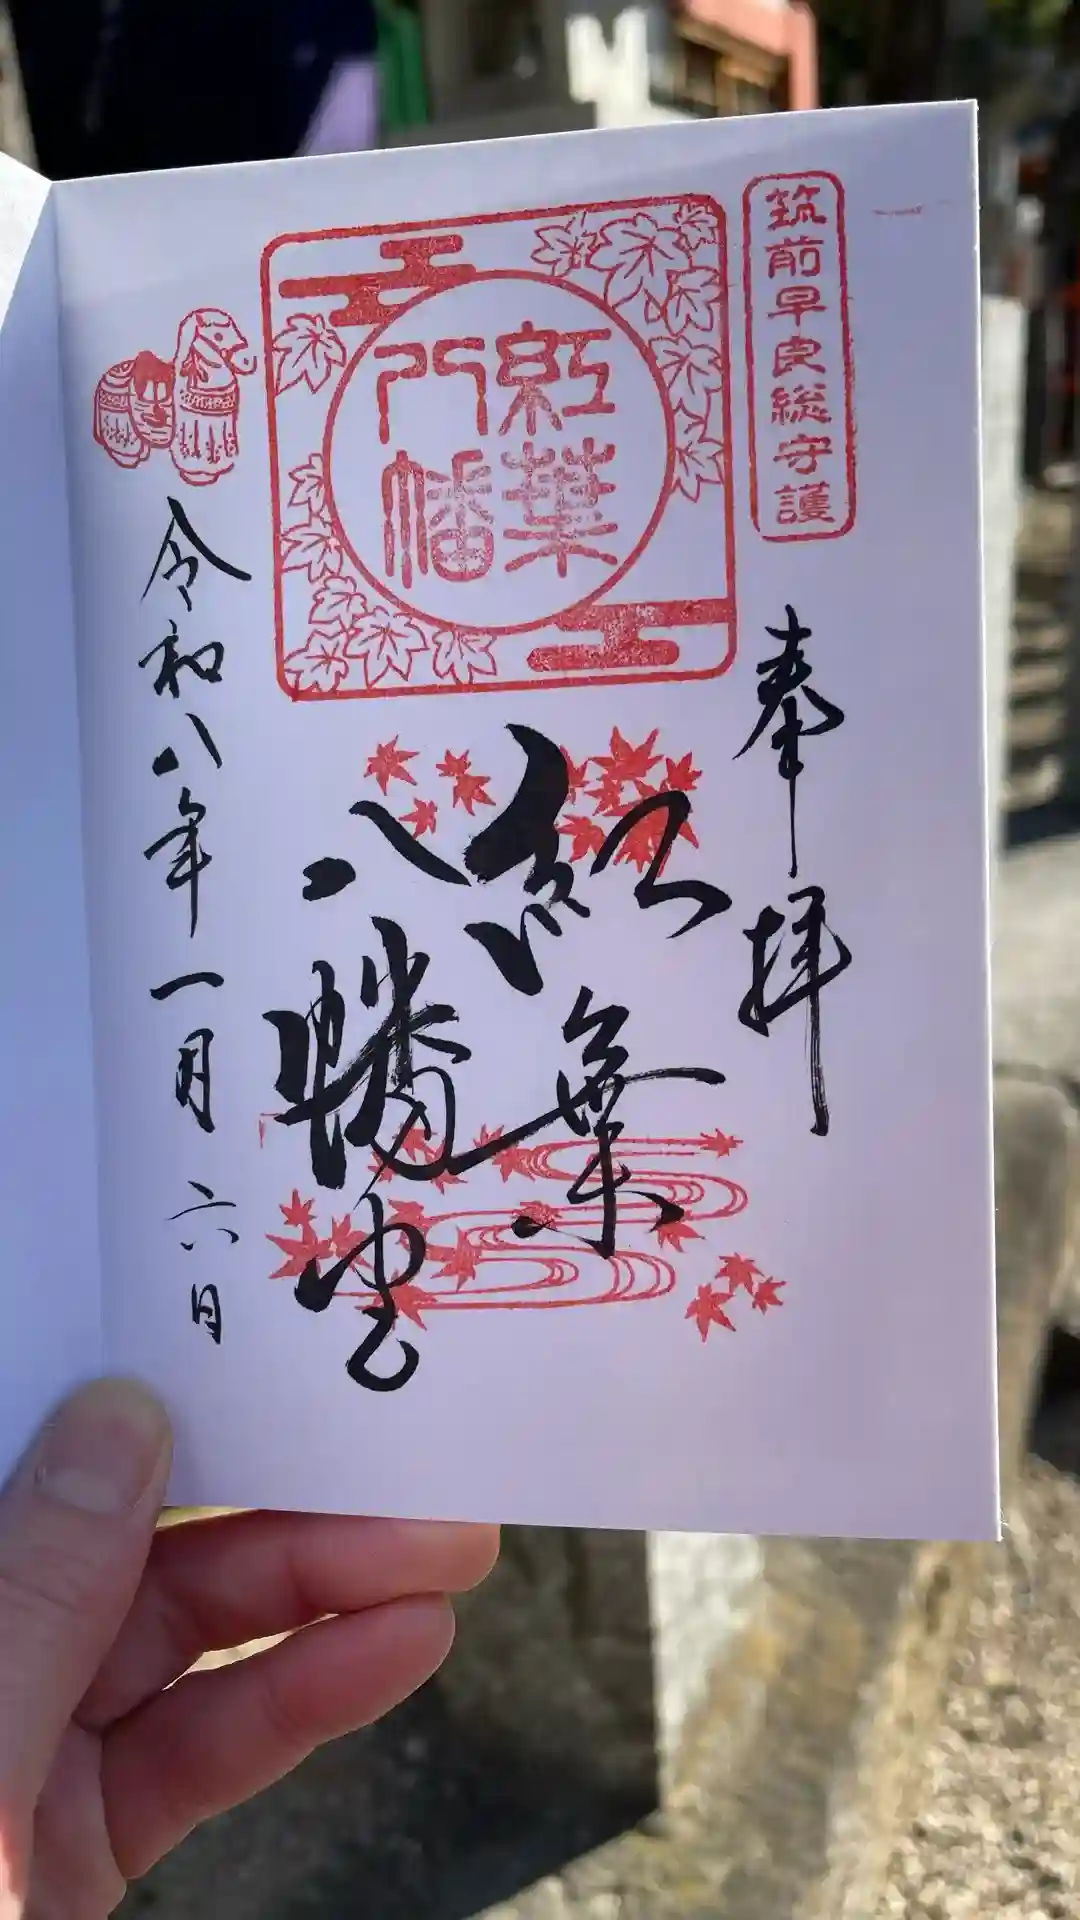 筑前早良総守護
奉拝
紅葉
八幡
紅葉
八幡宮
令和八年一月六日